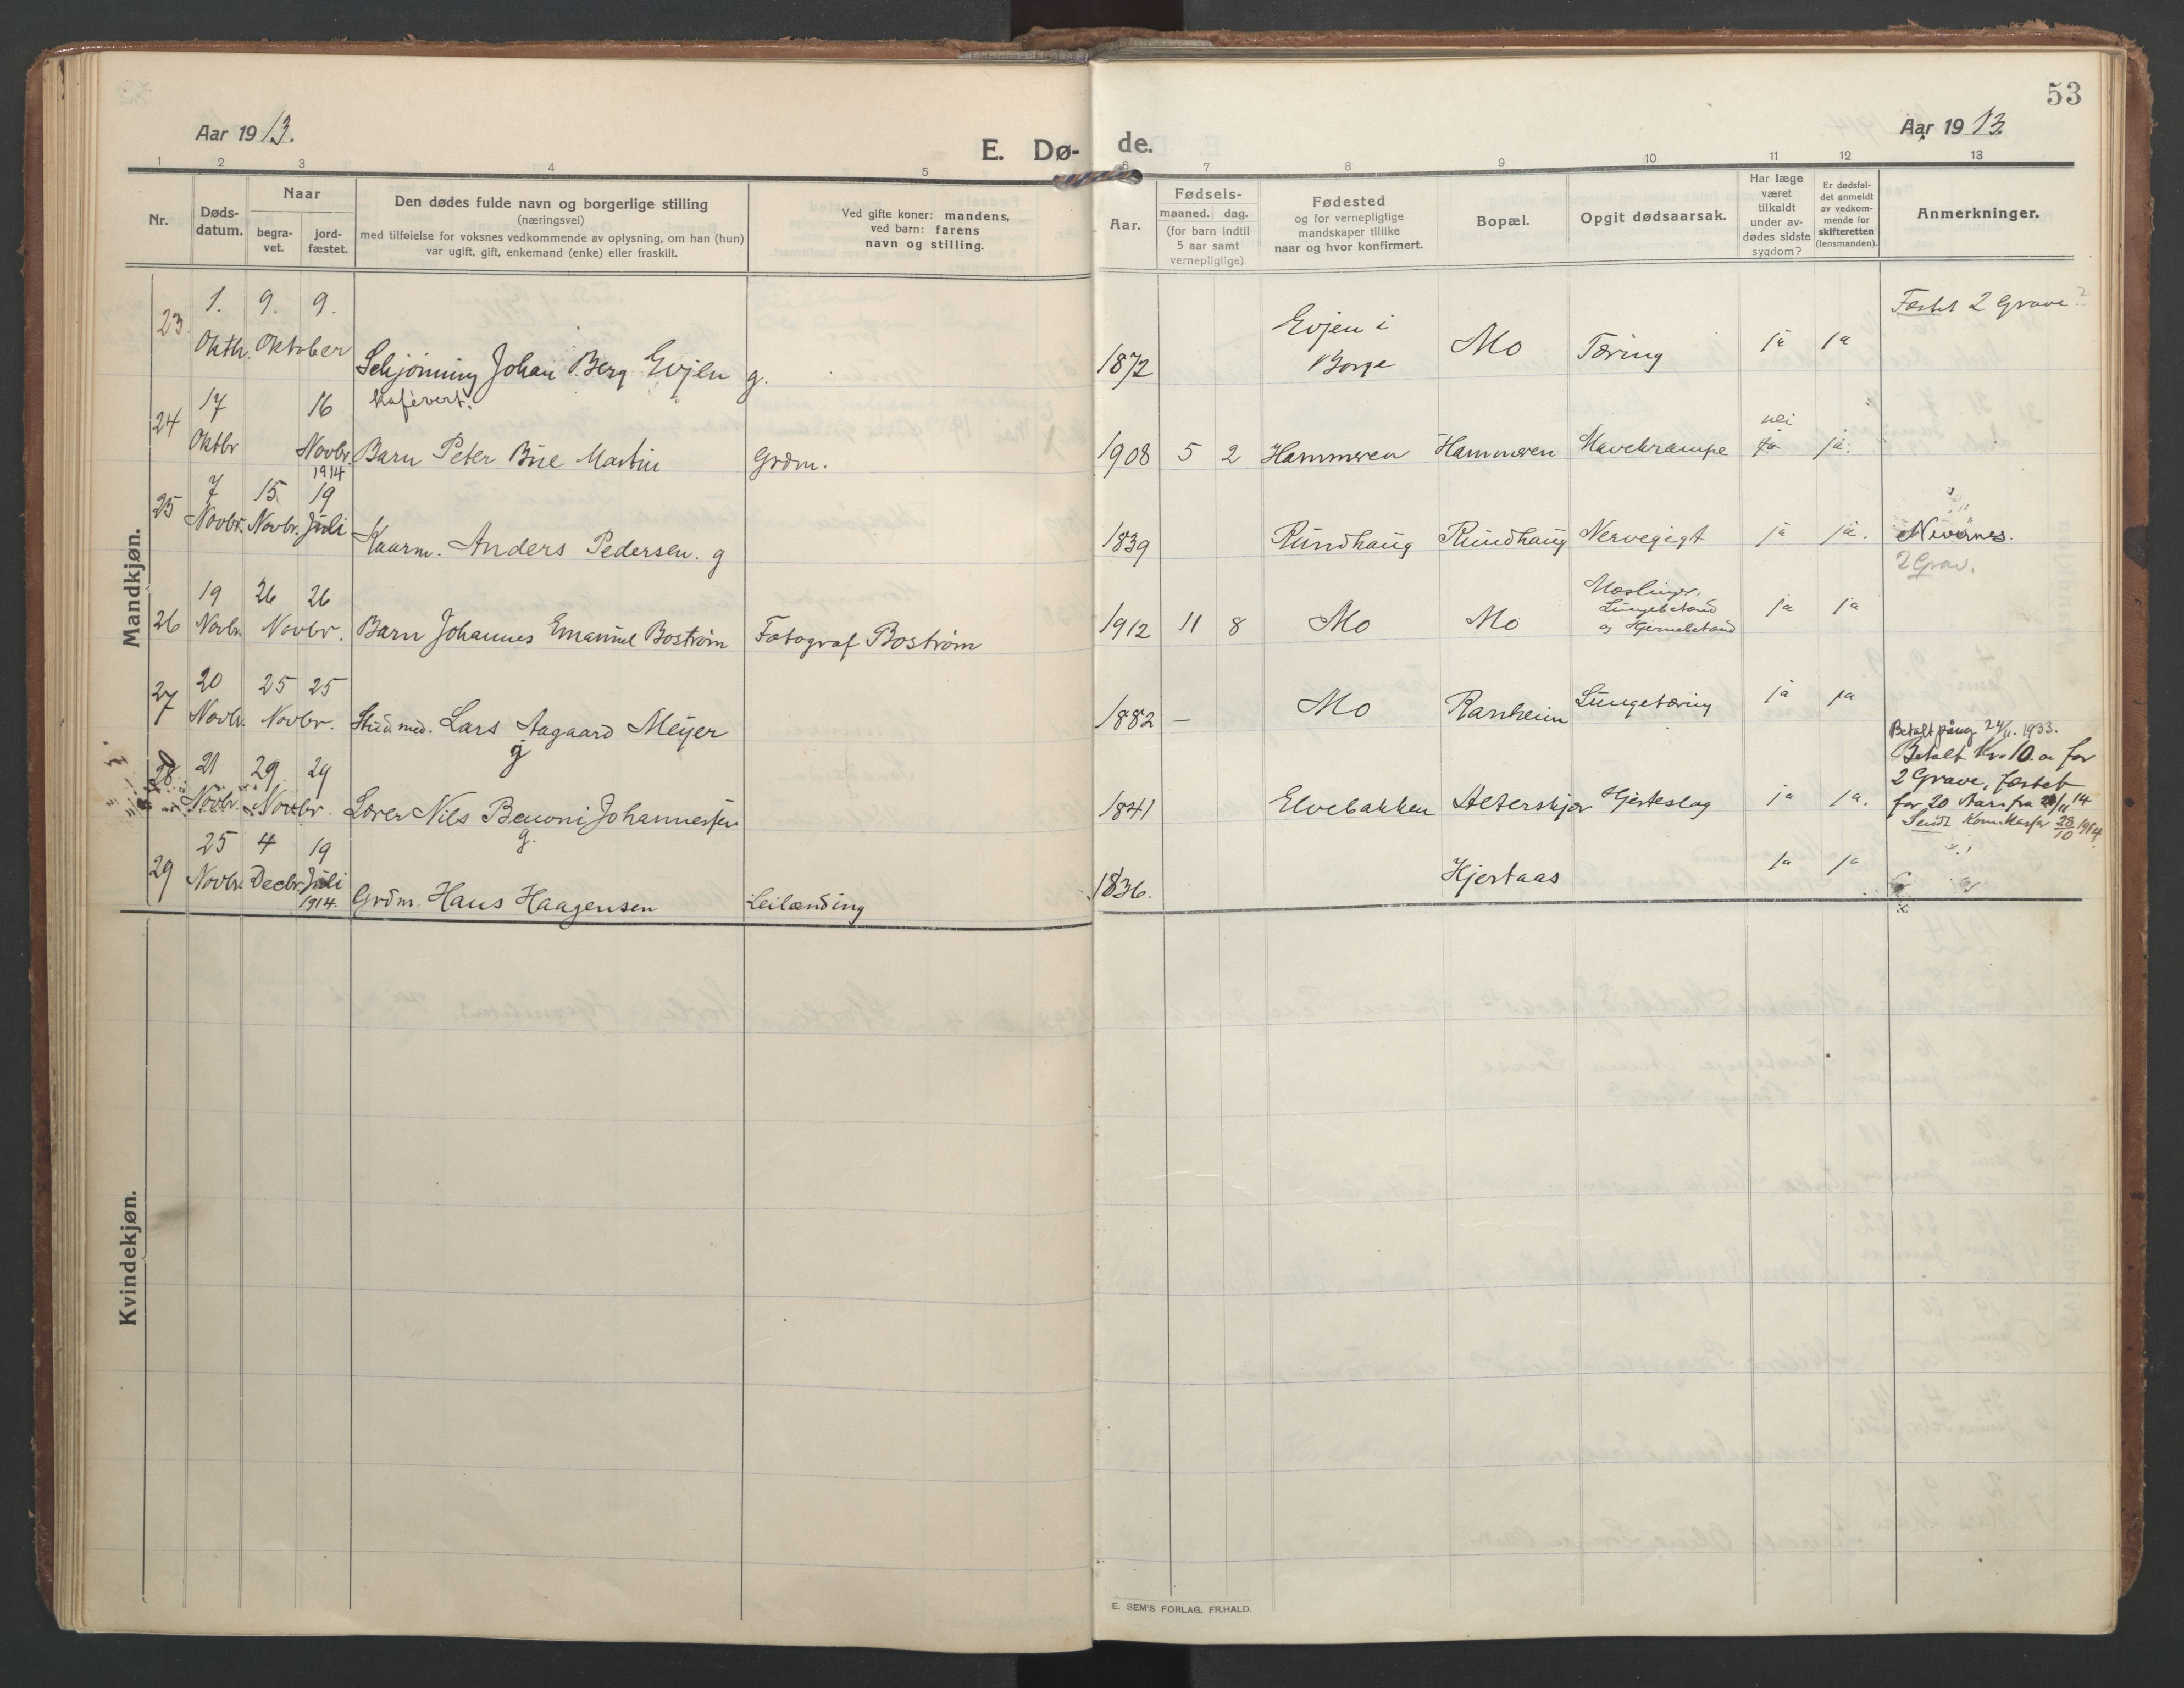 53
Aar 1913.
E. Dø-
de.
Aar 1913.
1 2 3 4 5 6 7 8 9 10 11 12 13
Nr.
Døds-
datum.
Naar
begra-
vet.
jord-
fæstet.
Den dødes fulde navn og borgerlige stilling
(næringsvei)
med tilføielse for voksnes vedkommende av oplysning, om han (hun)
var ugift, gift, enkemand (enke) eller fraskilt.
Ved gifte koner: mandens,
ved barn: farens
navn og stilling.
Aar.
Fødsels-
maaned. dag.
(for barn indtil
5 aar samt
vernepliglige)
Fødested
og for vernepligtige
mandskaper tillike
naar og hvor konfirmert.
Bopæl.
Opgit dødsaarsak.
Har læge
været
tilkaldt
under av-
dødes sidste
sygdom?
Er dødsfal-
det anmeldt
av vedkom-
mende for
skifteretten
(lensmanden).
Anmerkninger.
Mandkjøn.
23. 1. Oktbr. 9. 9. Oktober
Schjønning Johan Berg Evjen g.
Kafévert.
1872 Evjen i
Borge
Mo Tæring ja ja Fæstet 2 Grave.
24 17 Oktbr 16 Novbr. Barn Peter Brie Martin Grdm. 1908 5 2 Hammeren Hammeren Mavekrampe nei ja ja.
25 7 Novbr. 15. Novbr. 1914 19 Juli Kaarm. Anders Pedersen. g 1839 Rundhaug Rundhaug Nervegigt ja ja. Nivernes.
2 Grav.
26 19 Novbr. 26 26 Novbr. Barn Johannes Emanuel Bostrøm Fotograf Bostrøm 1912 11 8 Mo Mo Mæslinger,
Lungebetænd
og Hjernebetænd
ja ja
27 20 Novbr. 25 25 Novbr. Stud. med. Lars Aagaard Meyer
g
1882 — Mo Ranheim Lungetæring ja ja
28 21 Novbr. 29. 29 Novbr. Lærer Nils Benoni Johannessen
g.
1841 Elvebakken Alterskjær Hjerteslag ja ja.
Betalt paany 24/11. 1933.
Betalt Kr. 10.00 for
2 Grave, fæstet
for 20 Aar fra /11 14
Sendt Kom.kasse 28/10 1914.
29 25 Novbr. 4 Decbr. 19 Juli
1914.
Grdm. Hans Haagensen Leilænding 1836. Hjertaas ja ja
Kvindekjøn.
E. SEM'S FORLAG, FR.HALD.